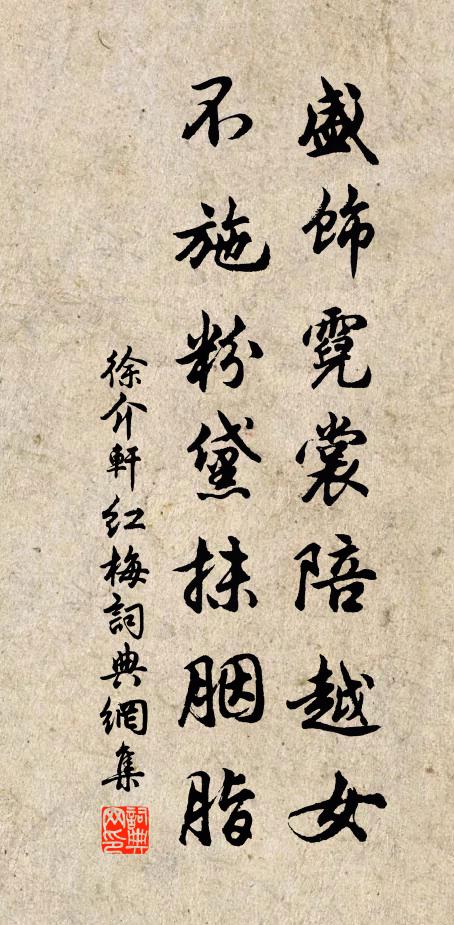 盛飾霓裳陪越女
不施粉黛抹胭脂
徐介軒紅梅詞典網集
詞典网印